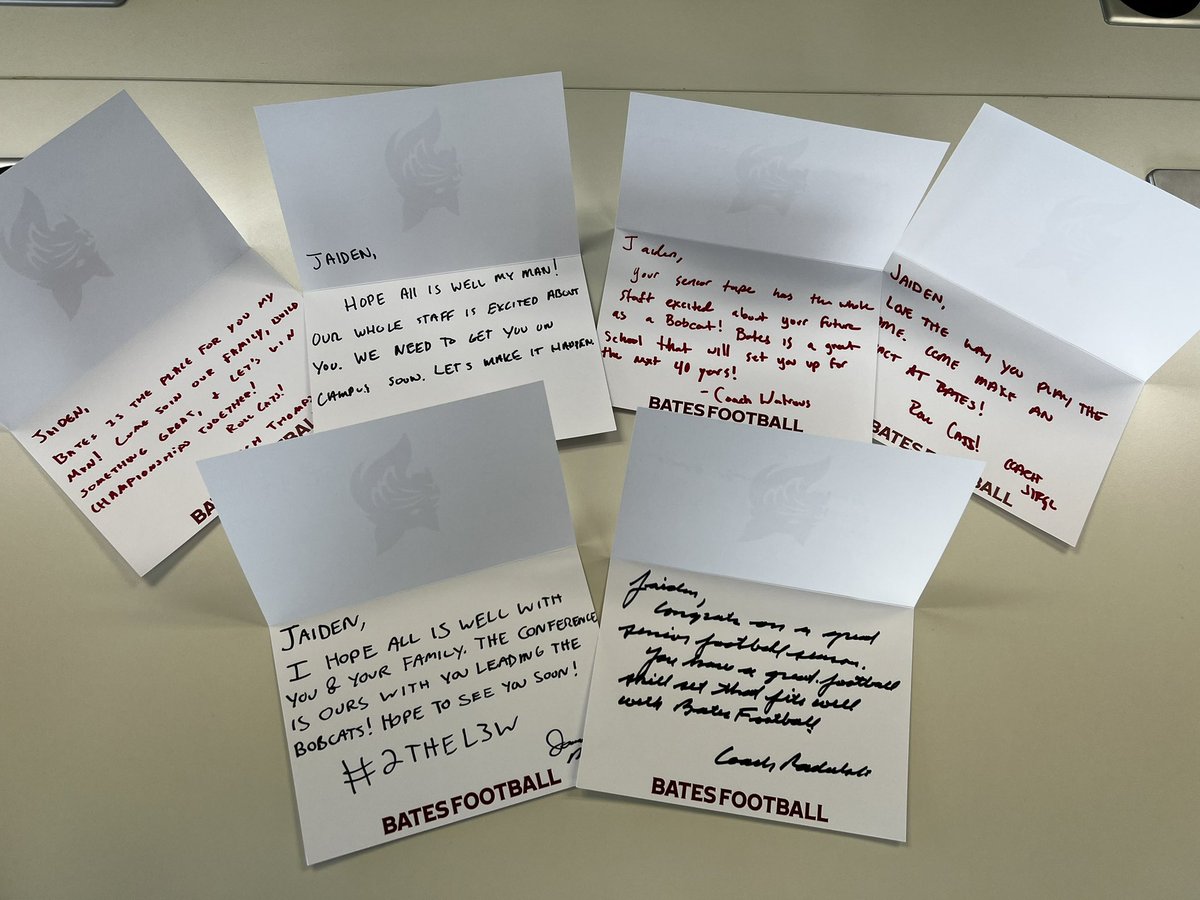 JAIDEN,
BATES IS THE PLACE FOR YOU MY
MAN! COME JOIN OUR FAMILY, BUILD
SOMETHING GREAT, & LET'S WIN
CHAMPIONSHIPS TOGETHER!
ROLL CATS!
JAIDEN,
HOPE ALL IS WELL MY MAN!
OUR WHOLE STAFF IS EXCITED ABOUT
YOU. WE NEED TO GET YOU ON
CAMPUS SOON. LET'S MAKE IT HAPPEN
Jaiden,
Your senior tape has the whole
staff excited about your future
as a Bobcat! Bates is a great
School that will set you up for
the next 40 years!
- Coach Watrous
BATES FOOTBALL
JAIDEN,
LOVE THE WAY YOU PLAY THE
COME MAKE AN
AT BATES!
ROLL CATS!
COACH
BATES
JAIDEN,
I HOPE ALL IS WELL WITH
YOU & YOUR FAMILY. THE CONFERENCE
IS OURS WITH YOU LEADING THE
BOBCATS! HOPE TO SEE YOU SOON!
#2THEL3W
BATES FOOTBALL
Jaiden,
Congrats on a great
senior football season.
You have a great football
skill set that fits well
with Bates Football!
Coach
BATES FOOTBALL